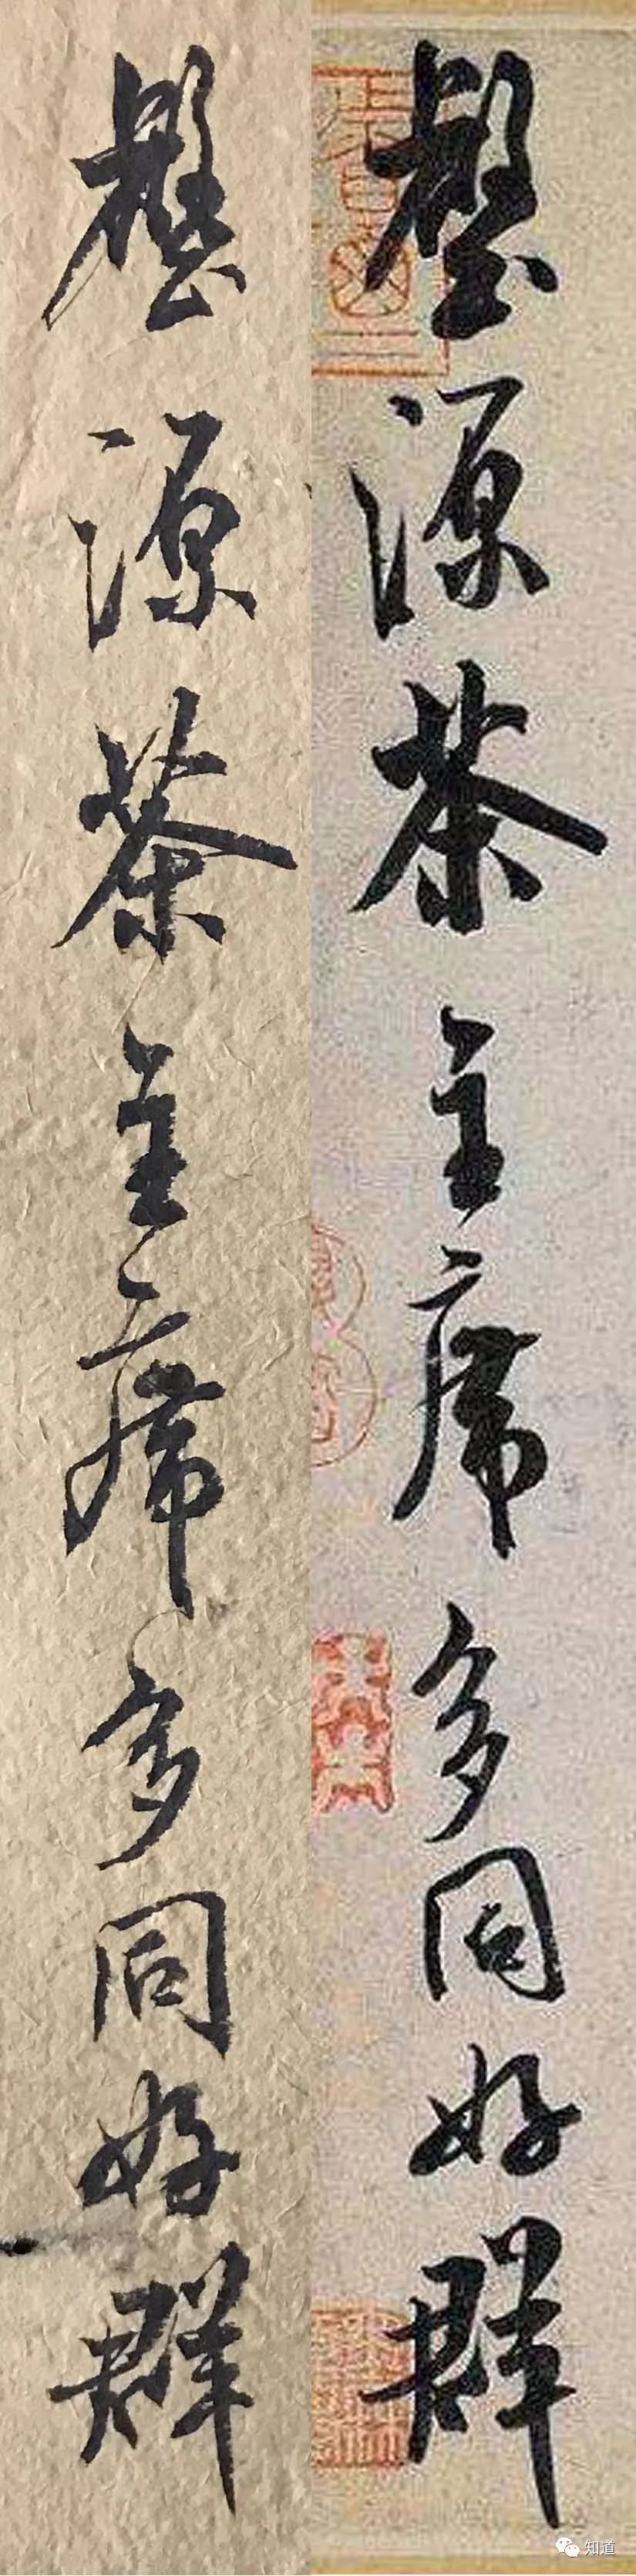 壑源茶主席多同好群
壑源茶主席多同好群
知道